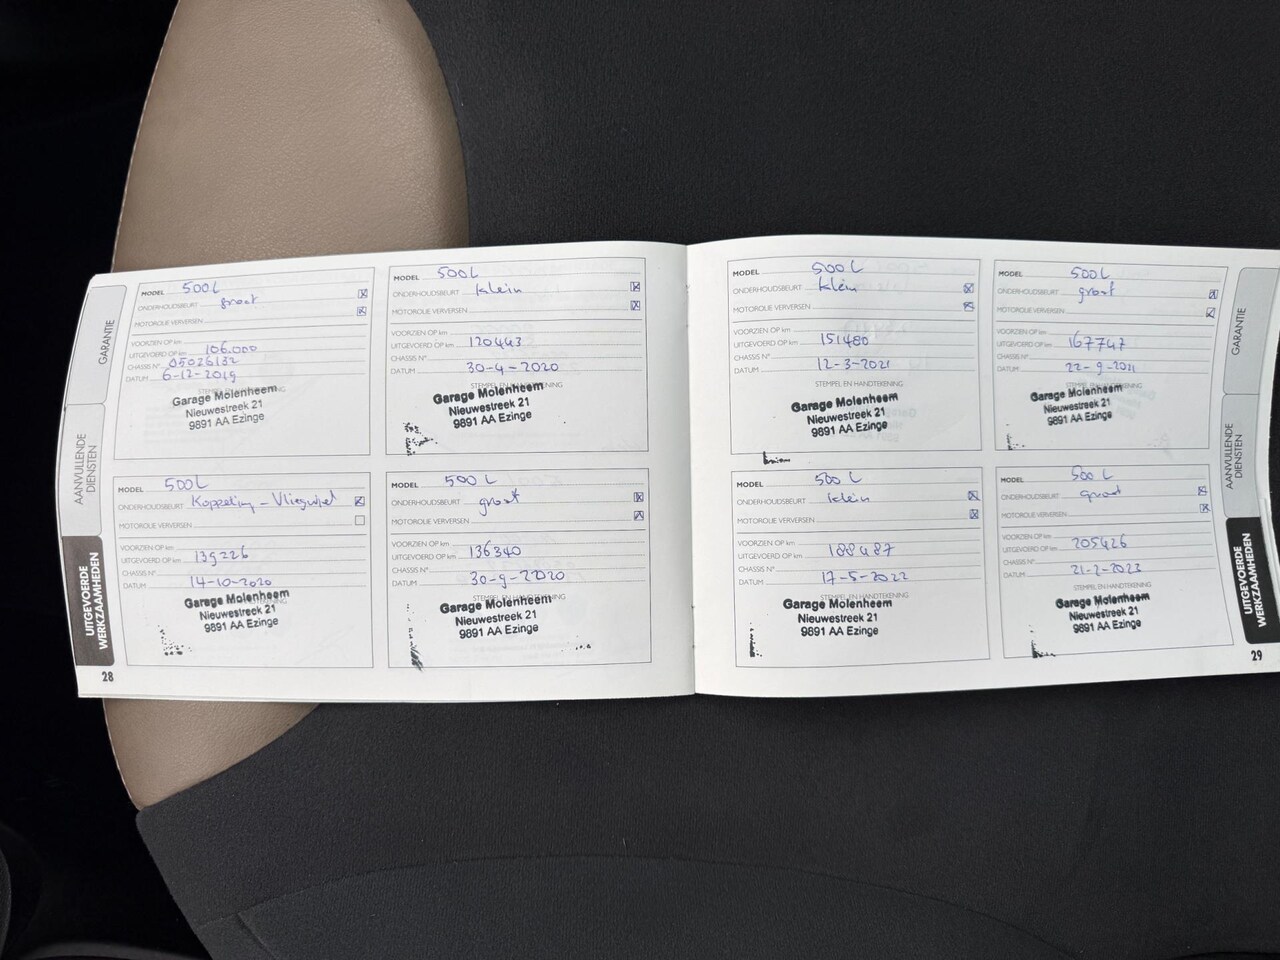 GARANTIE
AANVULLENDE
DIENSTEN
UITGEVOERDE
WERKZAAMHEDEN
28
MODEL 500L
ONDERHOUDSBEURT groot
MOTOROLIE VERVERSEN
VOORZIEN OP km
UITGEVOERD OP km 106.000
CHASSIS N° 05026132
DATUM 6-12-2019
STEMPEL EN HANDTEKENING
Garage Molenheem
Nieuwestreek 21
9891 AA Ezinge
MODEL 500L
ONDERHOUDSBEURT klein
MOTOROLIE VERVERSEN
VOORZIEN OP km
UITGEVOERD OP km 120443
CHASSIS N°
DATUM 30-4-2020
STEMPEL EN HANDTEKENING
Garage Molenheem
Nieuwestreek 21
9891 AA Ezinge
MODEL 500L
ONDERHOUDSBEURT Koppeling - Vliegwiel
MOTOROLIE VERVERSEN
VOORZIEN OP km
UITGEVOERD OP km 139226
CHASSIS N°
DATUM 14-10-2020
Garage Molenheem
Nieuwestreek 21
9891 AA Ezinge
MODEL 500 L
ONDERHOUDSBEURT groot
MOTOROLIE VERVERSEN
VOORZIEN OP km
UITGEVOERD OP km 136340
CHASSIS N°
DATUM 30-9-2020
STEMPEL EN HANDTEKENING
Garage Molenheem
Nieuwestreek 21
9891 AA Ezinge
MODEL 500 L
ONDERHOUDSBEURT klein
MOTOROLIE VERVERSEN
VOORZIEN OP km
UITGEVOERD OP km 151480
CHASSIS N°
DATUM 12-3-2021
STEMPEL EN HANDTEKENING
Garage Molenheem
Nieuwestreek 21
9891 AA Ezinge
MODEL 500L
ONDERHOUDSBEURT groot
MOTOROLIE VERVERSEN
VOORZIEN OP km
UITGEVOERD OP km 167747
CHASSIS N°
DATUM 22-9-2021
STEMPEL EN HANDTEKENING
Garage Molenheem
Nieuwestreek 21
9891 AA Ezinge
MODEL 500 L
ONDERHOUDSBEURT klein
MOTOROLIE VERVERSEN
VOORZIEN OP km
UITGEVOERD OP km 188487
CHASSIS N°
DATUM 17-5-2022
STEMPEL EN HANDTEKENING
Garage Molenheem
Nieuwestreek 21
9891 AA Ezinge
MODEL 500 L
ONDERHOUDSBEURT groot
MOTOROLIE VERVERSEN
VOORZIEN OP km
UITGEVOERD OP km 205426
CHASSIS N°
DATUM 21-2-2023
STEMPEL EN HANDTEKENING
Garage Molenheem
Nieuwestreek 21
9891 AA Ezinge
GARANTIE
AANVULLENDE
DIENSTEN
UITGEVOERDE
WERKZAAMHEDEN
29